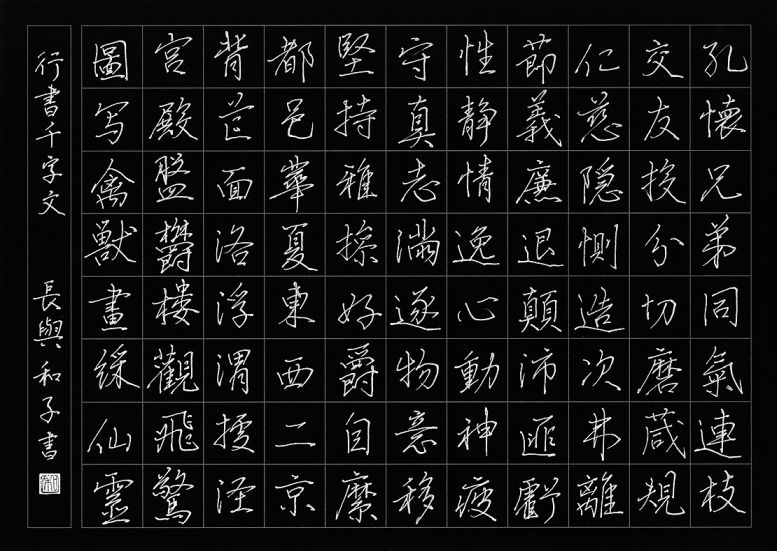 孔懷兄弟同氣連枝
交友投分切磨箴規
仁慈隠惻造次弗離
節義廉退顛沛匪虧
性静情逸心動神疲
守真志満逐物意移
堅持雅操好爵自縻
都邑華夏東西二京
背芒面洛浮渭據涇
宮殿盤欝樓觀飛驚
圖写禽獣畫綵仙靈
行書千字文 長與和子書